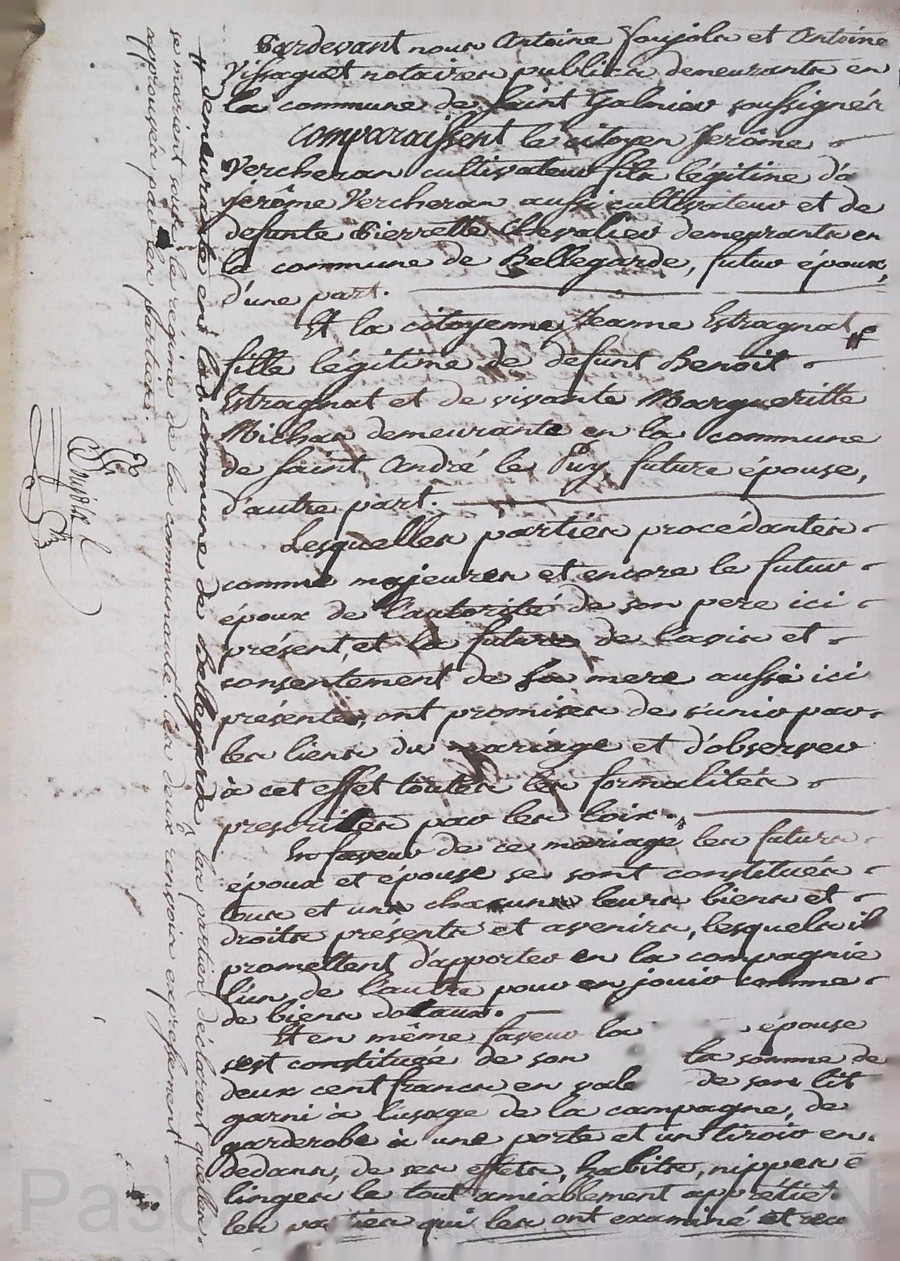 Pardevant nous Antoine Soujols et Antoine
Vissaguet notaires publics demeurants en
la commune de Saint Galmier soussignés
Comparaissent le citoyen Jerôme
Vercheran cultivateur fils légitime de
jérôme Vercheran aussi cultivateur et de
defunte Pierrette Chevalier demeurants en
la commune de Bellegarde, futur époux,
d'une part.
Et la citoyenne Jeanne Estragnat #
fille légitime de defunt Benoit
Estragnat et de vivante Margueritte
Michas demeurante en la commune
de Saint André le Puy future épouse,
d'autre part.
Lesquelles parties procédantes
comme majeures et encore le futur
époux de l'autorité de son pere ici
présent, et la future de l'avis et
consentement de sa mere aussi ici
présente, ont promises de s'unir par
les liens du mariage et d'observer
à cet effet toutes les formalités
prescrites par les loix.
En faveur de ce mariage les futurs
époux et épouse se sont constitués
tous et uns chacuns leurs biens et
droits présents et avenirs, lesquels il
promettent d'apporter en la compagnie
l'un de l'autre pour en jouir comme
de biens dotaux.
Et en même faveur la épouse
s'est constituée de son la somme de
deux cent francs en vale de son lit
garni à l'usage de la campagne, de
garderobe à une porte et un tiroir en
dedans, de ses effets, habits, nippes e
linges, le tout amiablement apprétié
les qui les ont examiné et reco
# demeurante en la commune de Bellegarde, les parties déclarent quelles
se marient sous le regime de la communauté. les deux renvois expressement
approuvés par les parties.
Pasc